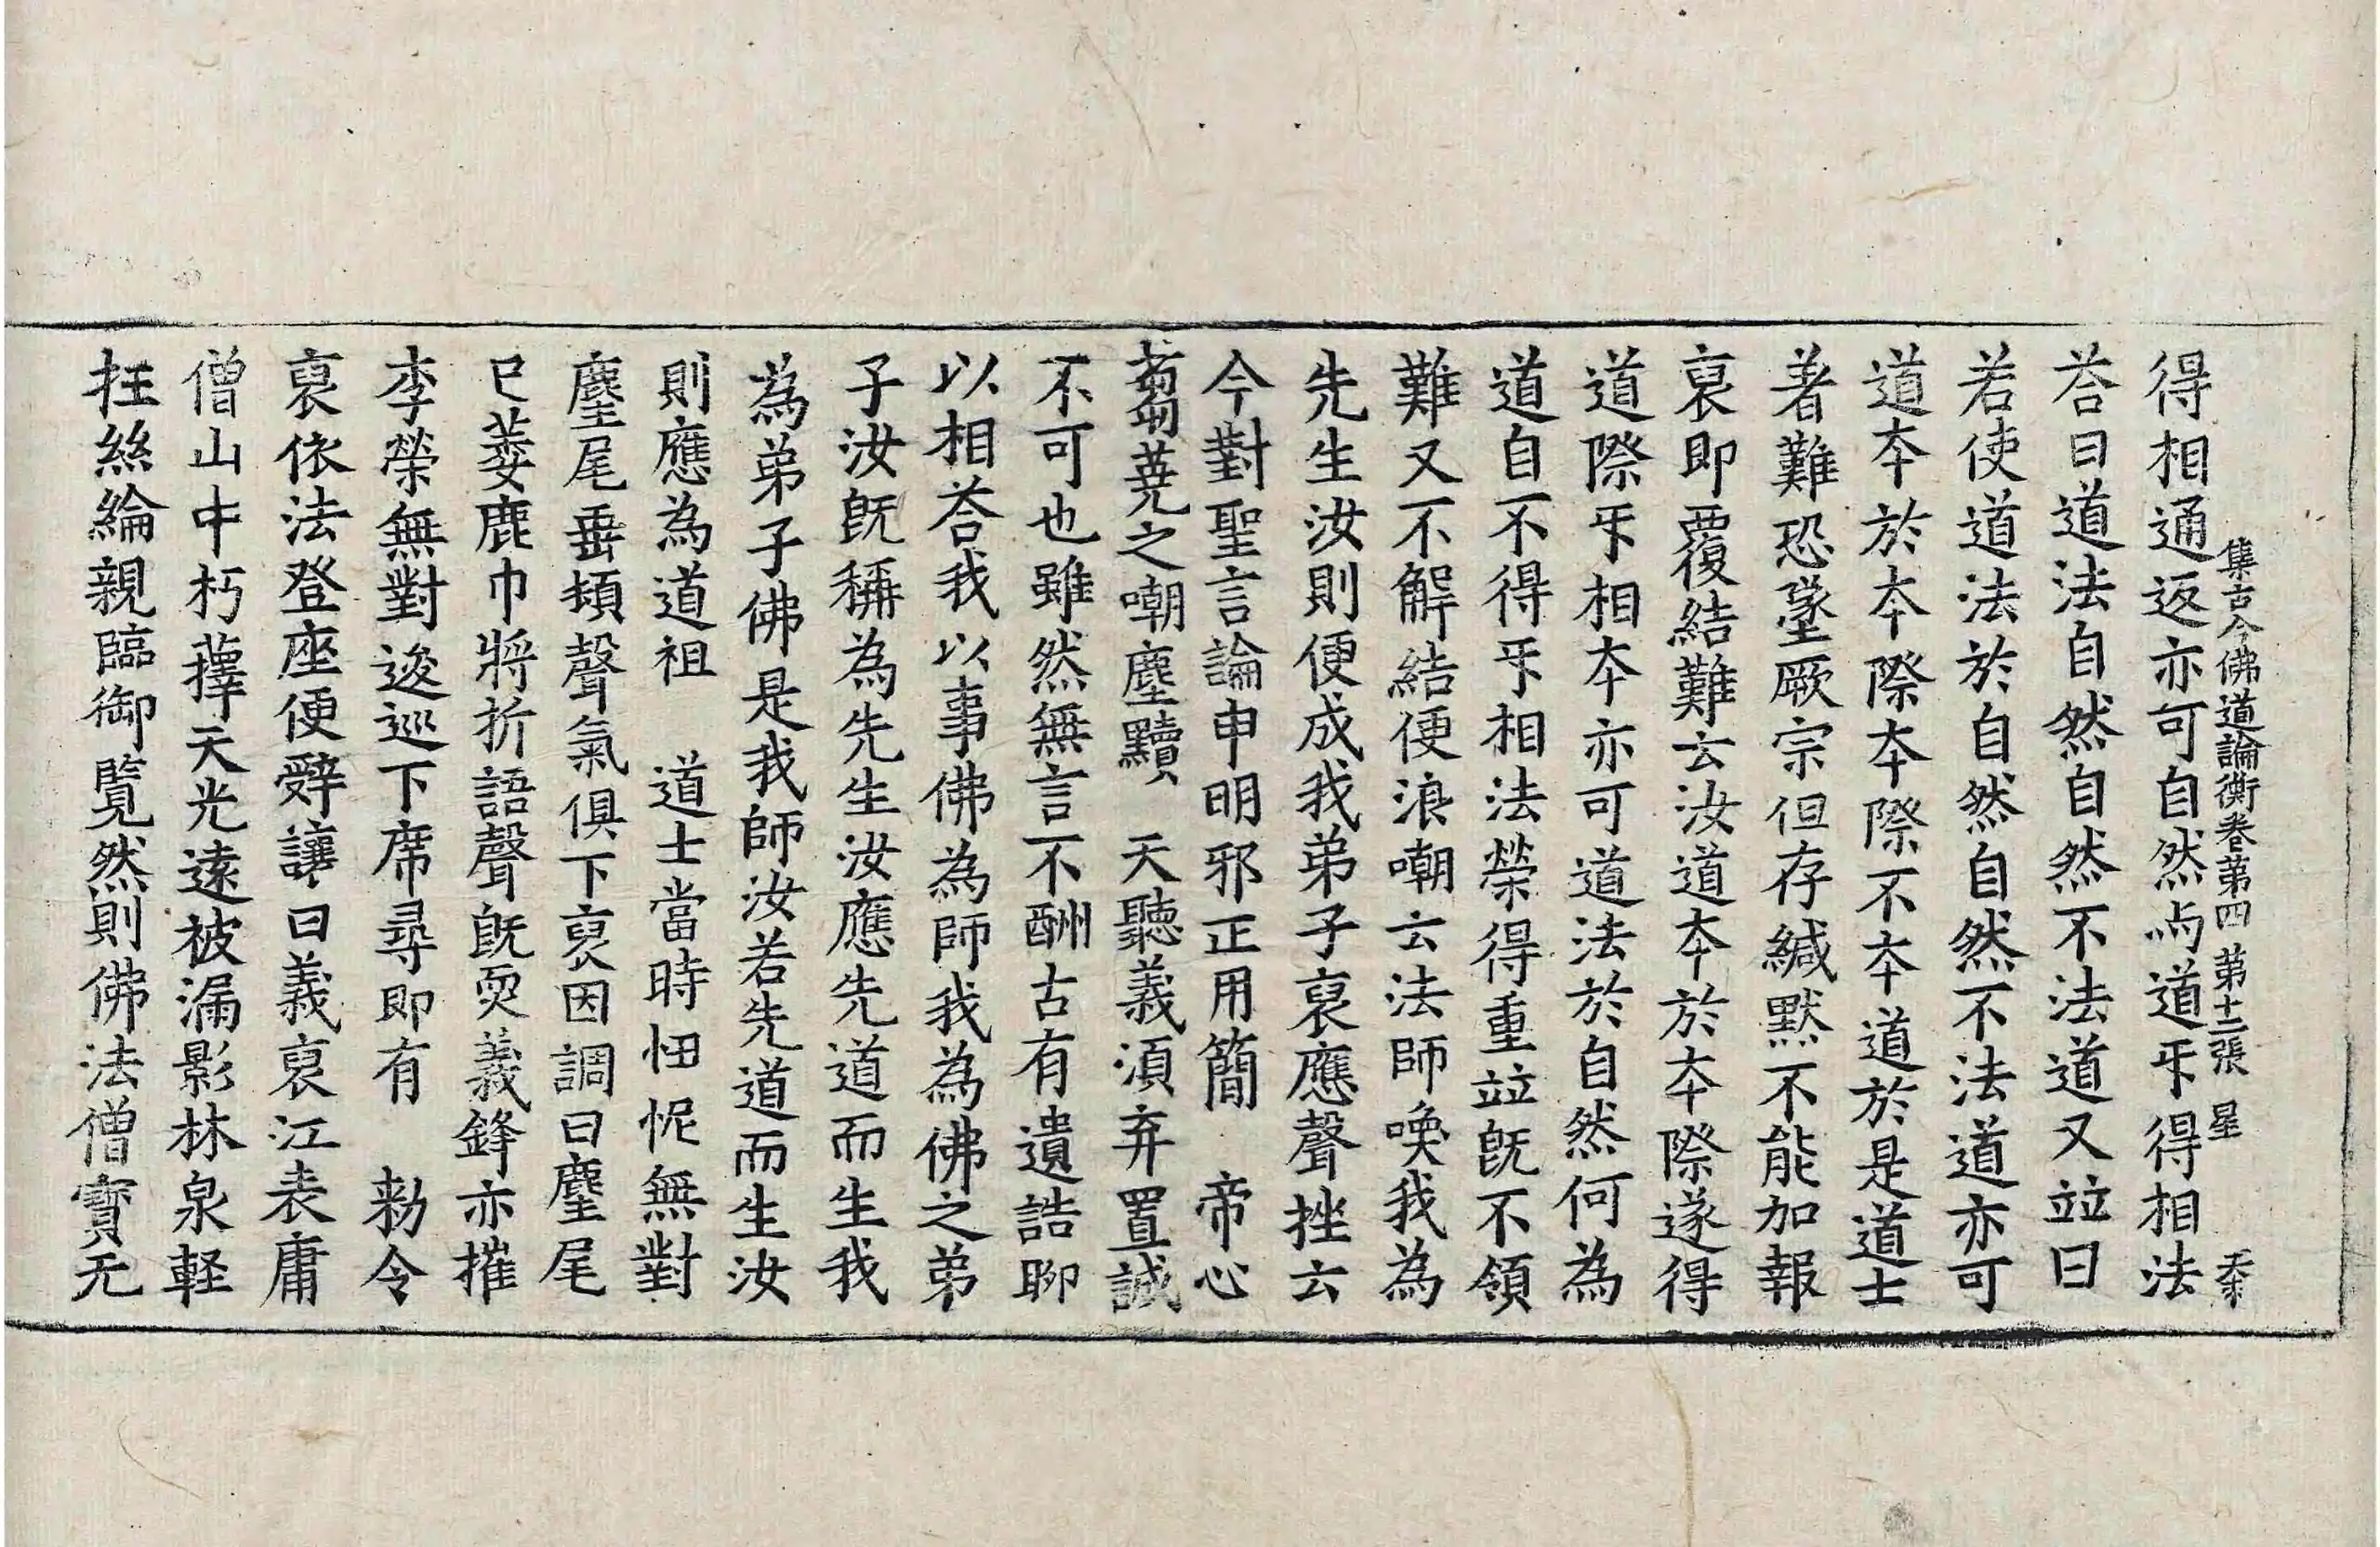 集古今佛道論衡卷第四 第十二張 星
得相通返亦可自然与道㸦得相法
荅曰道法自然自然不法道又竝曰
若使道法於自然自然不法道亦可
道夲於夲際夲際不夲道於是道士
著難恐墬厥宗但存緘默不能加報
裒即覆結難云汝道夲於夲際遂得
道際㸦相夲亦可道法於自然何為
道自不得㸦相法榮得重竝旣不領
難又不解結便浪嘲云法師喚我為
先生汝則便成我弟子裒應聲挫云
今對聖言論申明邪正用簡 帝心
蒭蕘之嘲塵黷 天聽義湏弃置誠
不可也雖然無言不酬古有遺誥聊
以相荅我以事佛為師我為佛之弟
子汝旣稱為先生汝應先道而生我
為弟子佛是我師汝若先道而生汝
則應為道祖 道士當時忸怩無對
麈尾垂頰聲氣俱下裒因調曰麈尾
已萎鹿巾將折語聲旣耎義鋒亦摧
李榮無對逡巡下席尋即有 勑令
裒依法登座便辤讓曰義裒江表庸
僧山中朽蘀天光遠被漏影林泉軽
抂絲綸親臨御覽然則佛法僧寶无